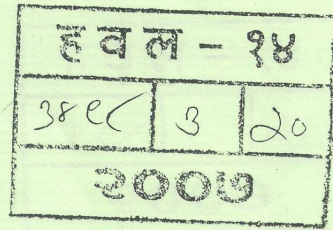 हवल - १४
३४९८ ३ २०
२००७